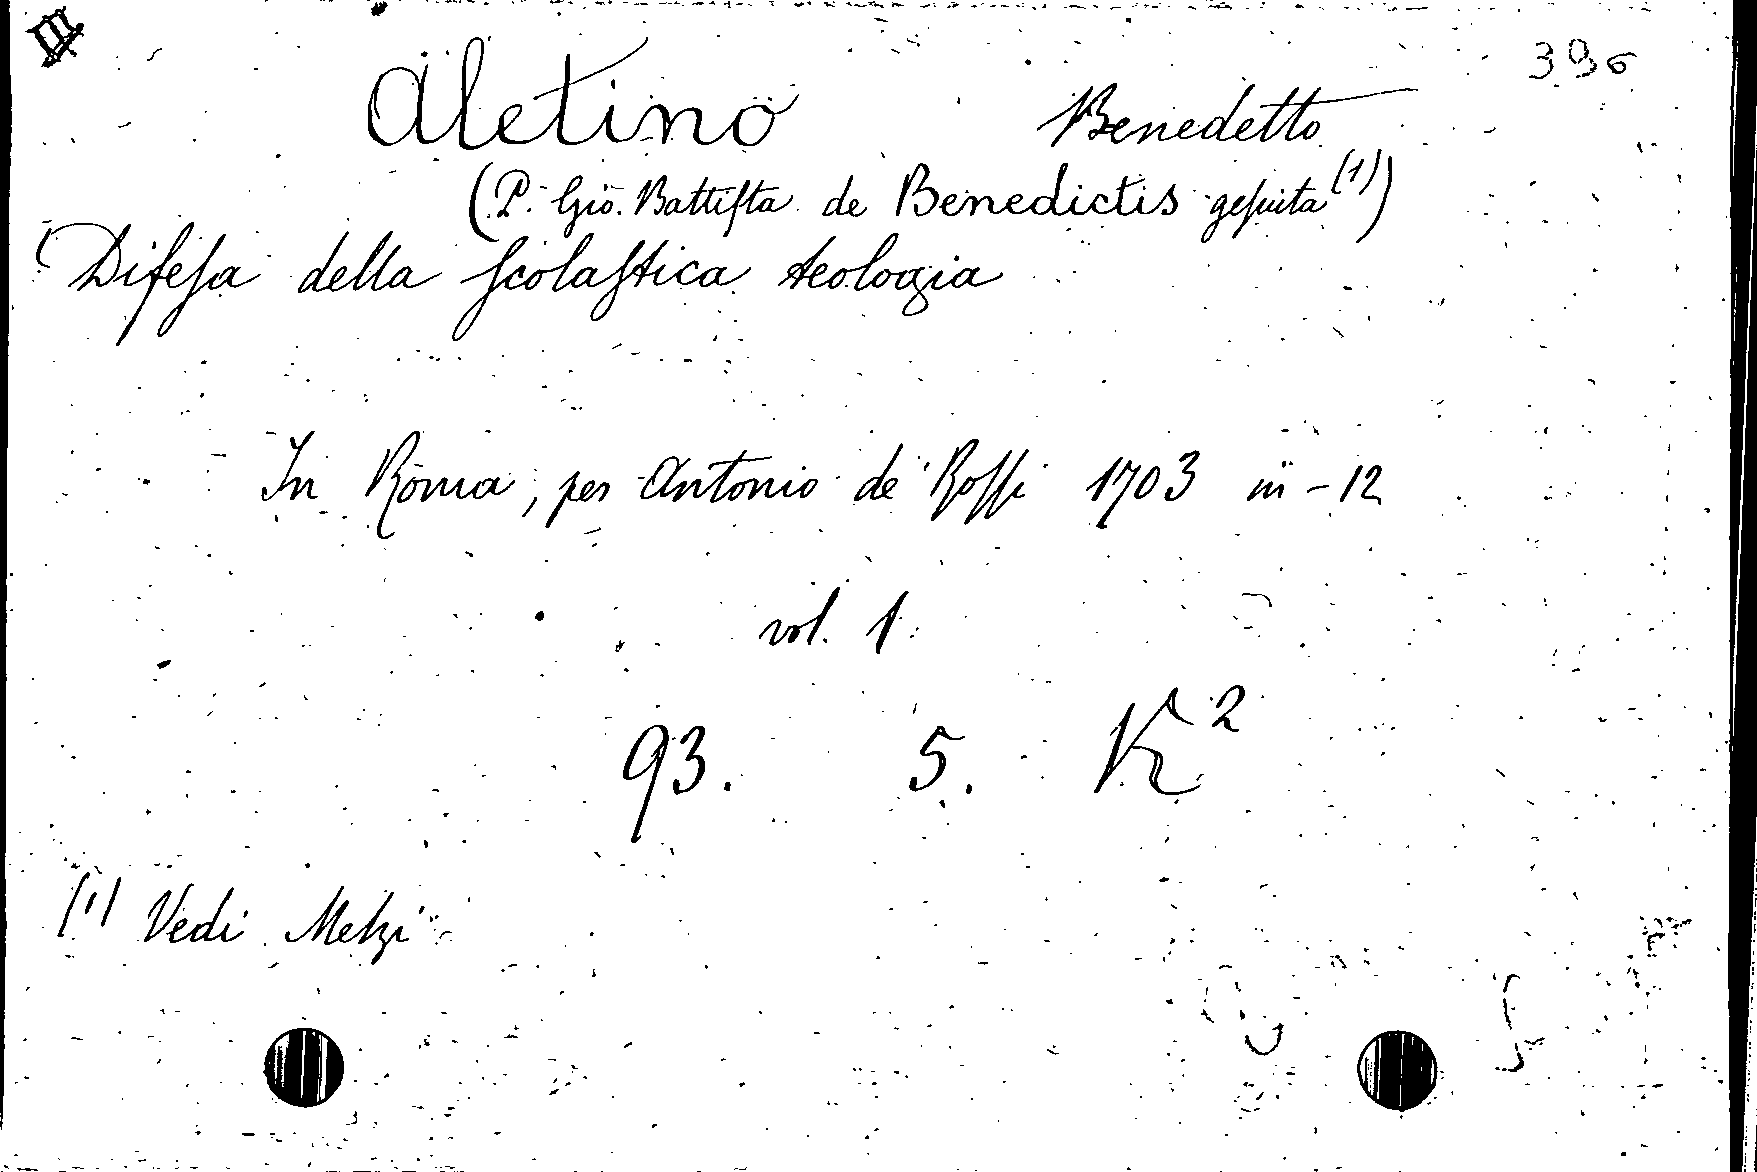 396
Aletino Benedetto
(P. Gio. Battiſta de Benedictis geſuita (1))
Difeſa della ſcolaſtica teologia
In Roma, per Antonio de' Roſſi 1703 in-12
vol. 1.
93. 5. K 2
(1) Vedi Melzi